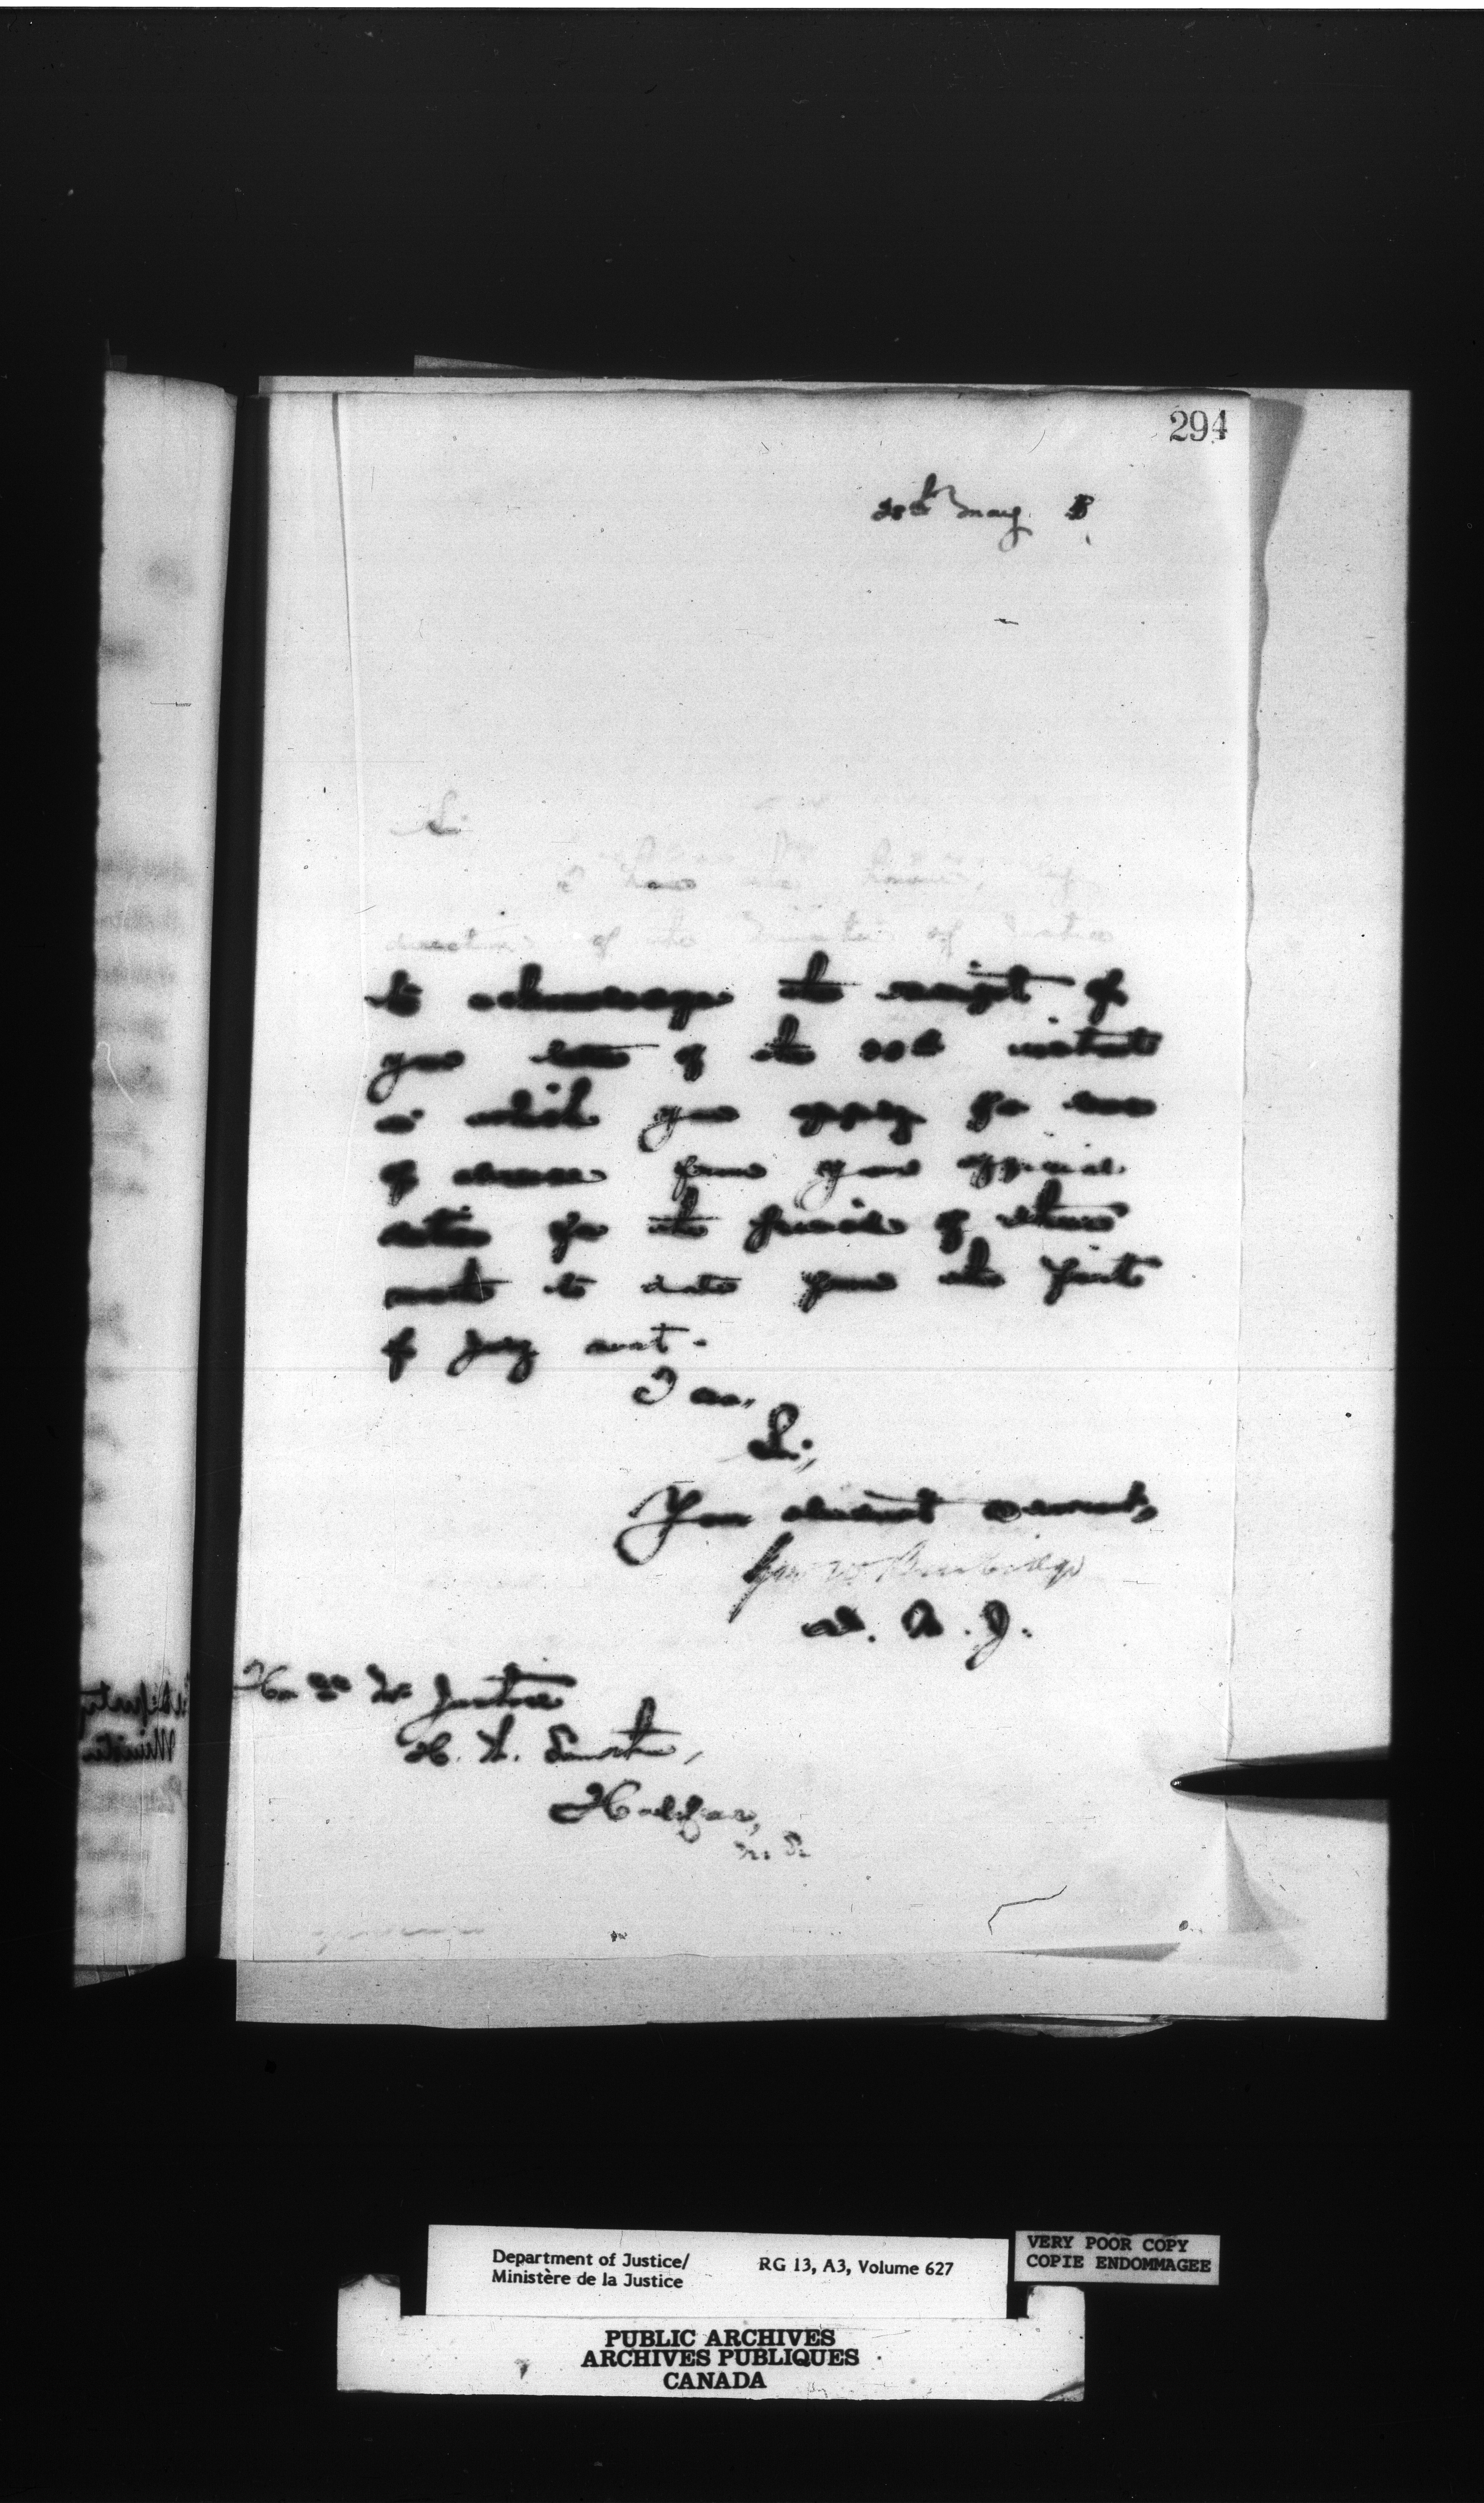 294
28th May
Sir
I have the honour, by
direction of the Minister of Justice
to acknowledge the receipt of
your letter of the 20th instant
in which you apply for leave
of absence from your official
duties for the period of three
months to date from the first
of July next.
I am,
Sir,
Your obedient servant,
Geo W Burbidge
D. M. J.
Justice
H. W. Smith,
Halifax,
N. S.
Department of Justice/
Ministère de la Justice
RG 13, A3, Volume 627
VERY POOR COPY
COPIE ENDOMMAGEE
PUBLIC ARCHIVES
ARCHIVES PUBLIQUES
CANADA